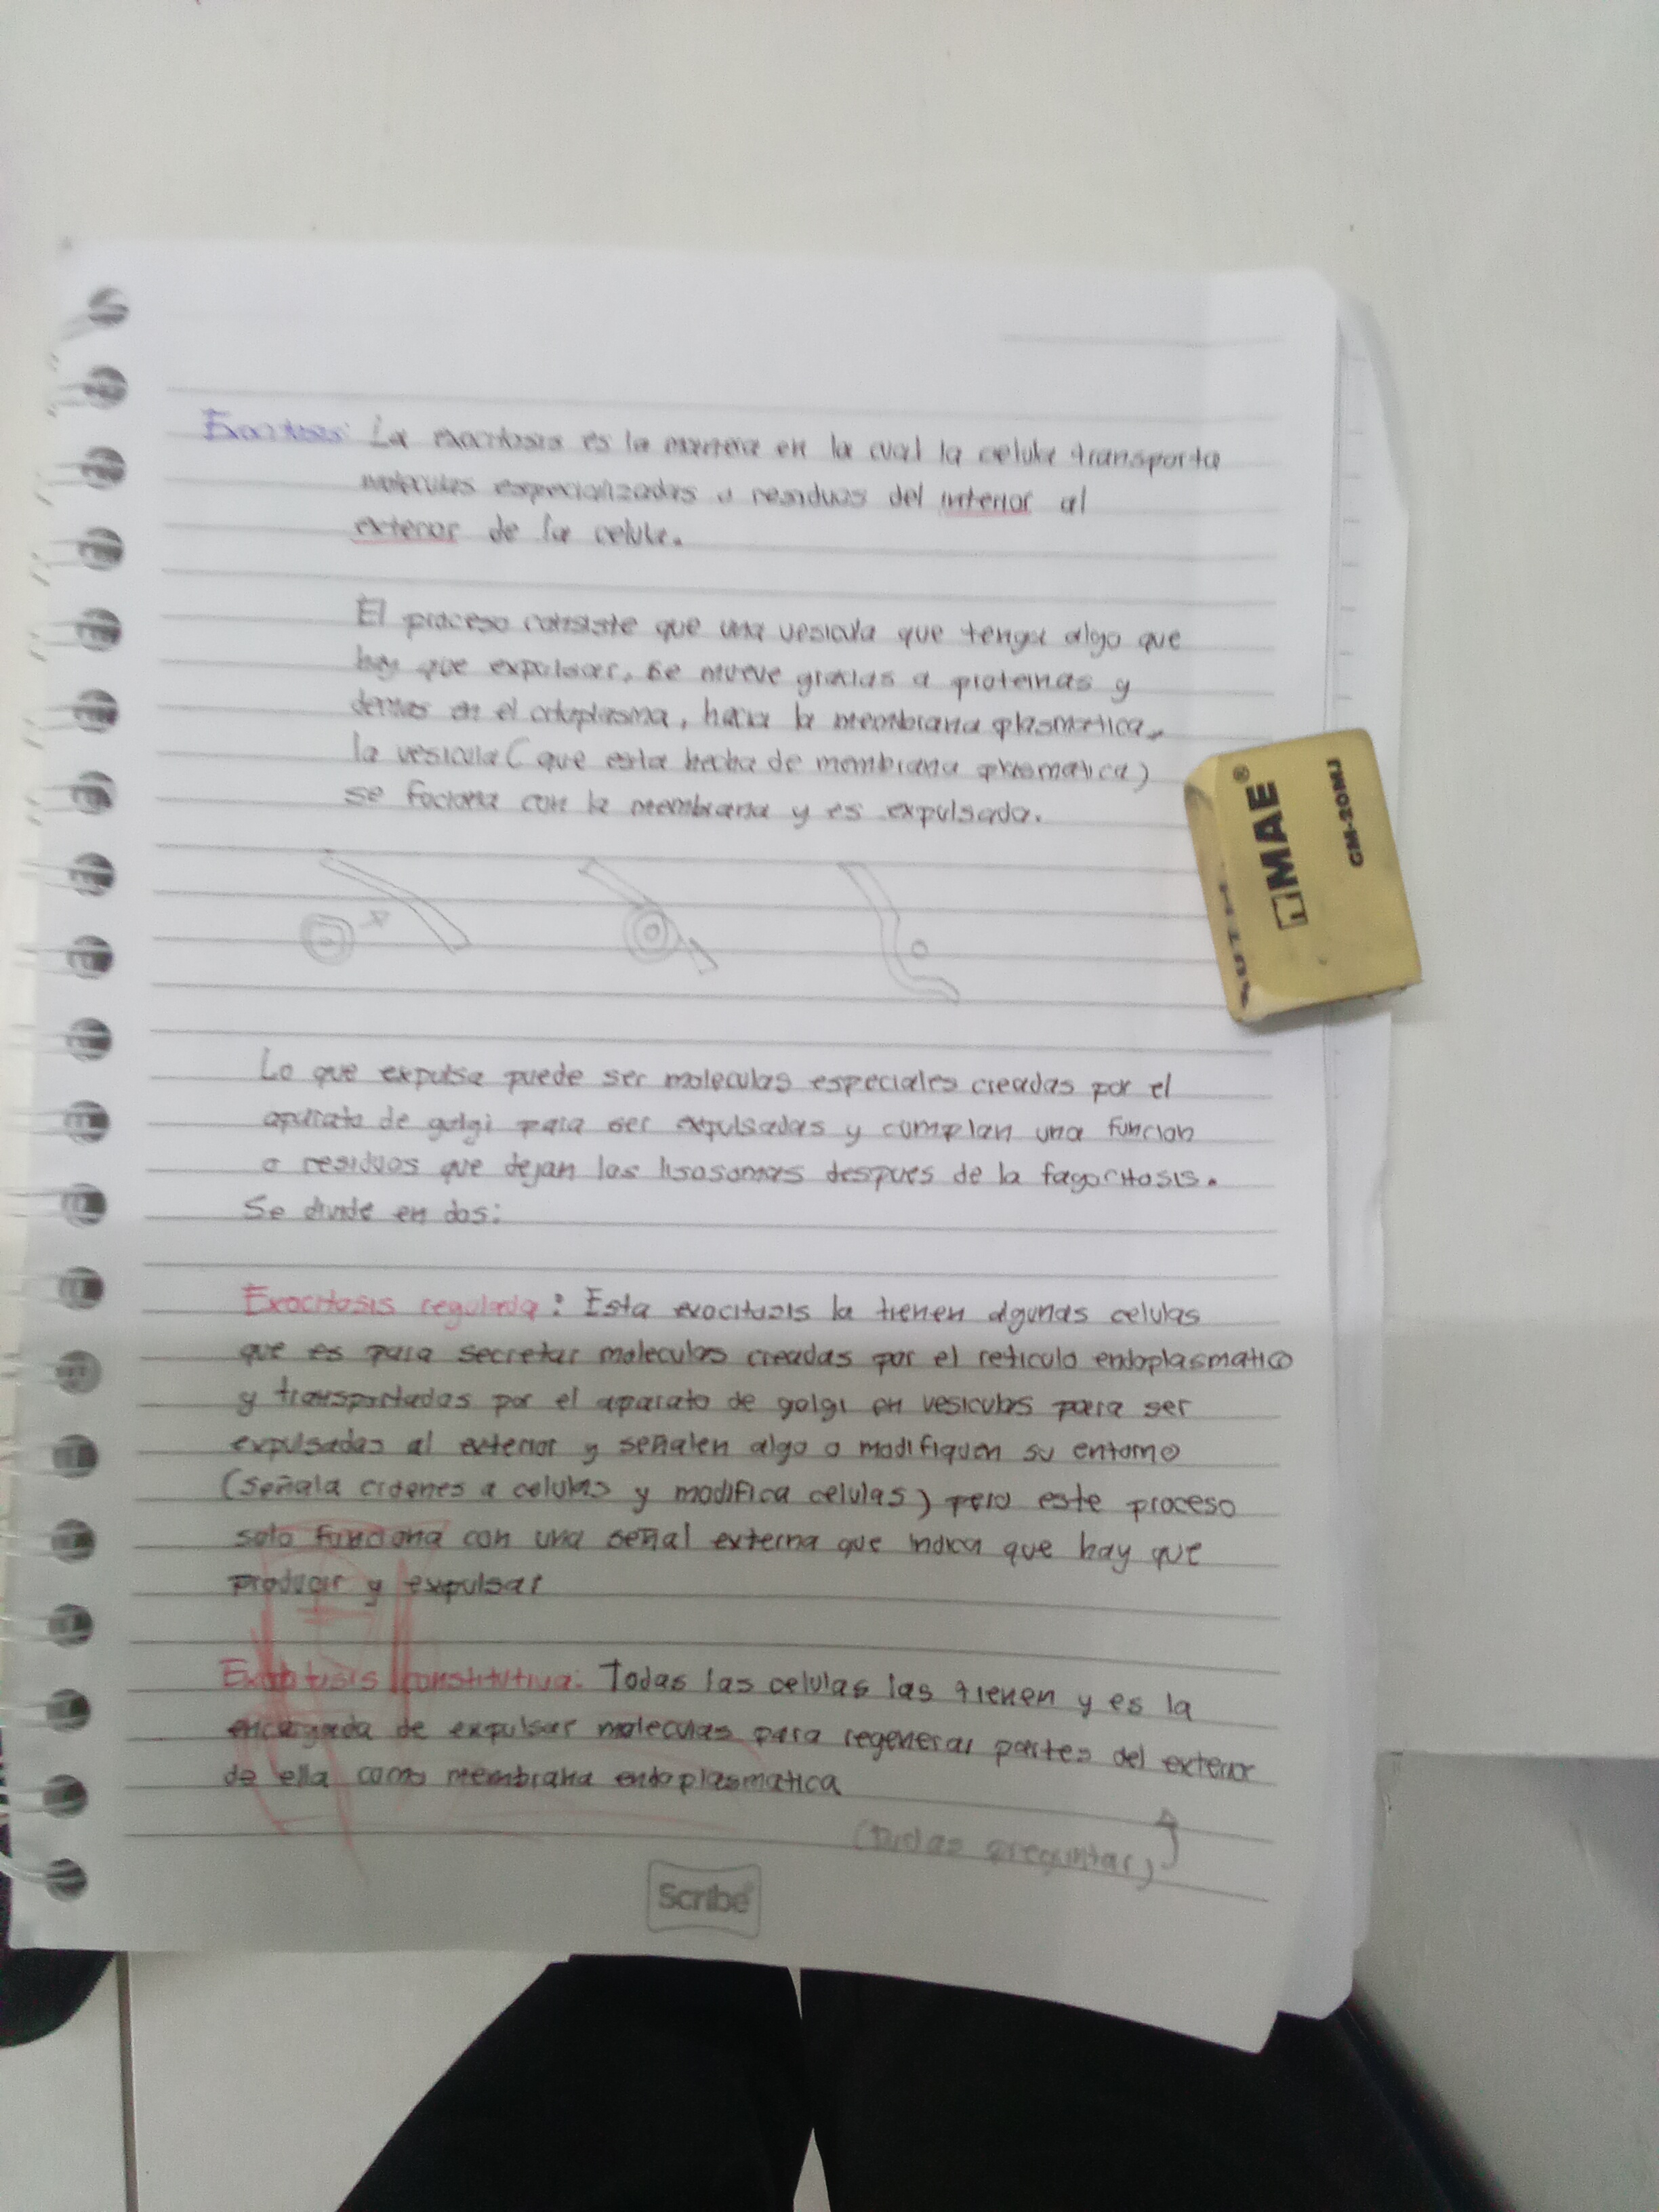 Exocitosis: La exocitosis es la manera en la cual la celula transporta
moleculas especializadas o residuos del interior al
exterior de la celula.
El proceso consiste que una vesicula que tenga algo que
hay que expulsar, se mueve gracias a proteinas y
demas en el citoplasma, hacia la membrana plasmatica,
la vesicula (que esta hecha de membrana plasmatica)
se fociona con la membrana y es expulsada.
Lo que expulsa puede ser moleculas especiales creadas por el
aparato de golgi para ser expulsadas y cumplan una funcion
o residuos que dejan los lisosomas despues de la fagocitosis.
Se divide en dos:
Exocitosis regulada: Esta exocitosis la tienen algunas celulas
que es para secretar moleculas creadas por el reticulo endoplasmatico
y transportadas por el aparato de golgi en vesiculas para ser
expulsadas al exterior y señalen algo o modifiquen su entorno
(señala ordenes a celulas y modifica celulas) pero este proceso
solo funciona con una señal externa que indica que hay que
producir y expulsar
Exocitosis constitutiva: Todas las celulas las tienen y es la
encargada de expulsar moleculas para regenerar partes del exterior
de ella como membrana endoplasmatica
(Dudas preguntar)
Scribe
MAE®
GM-20MJ